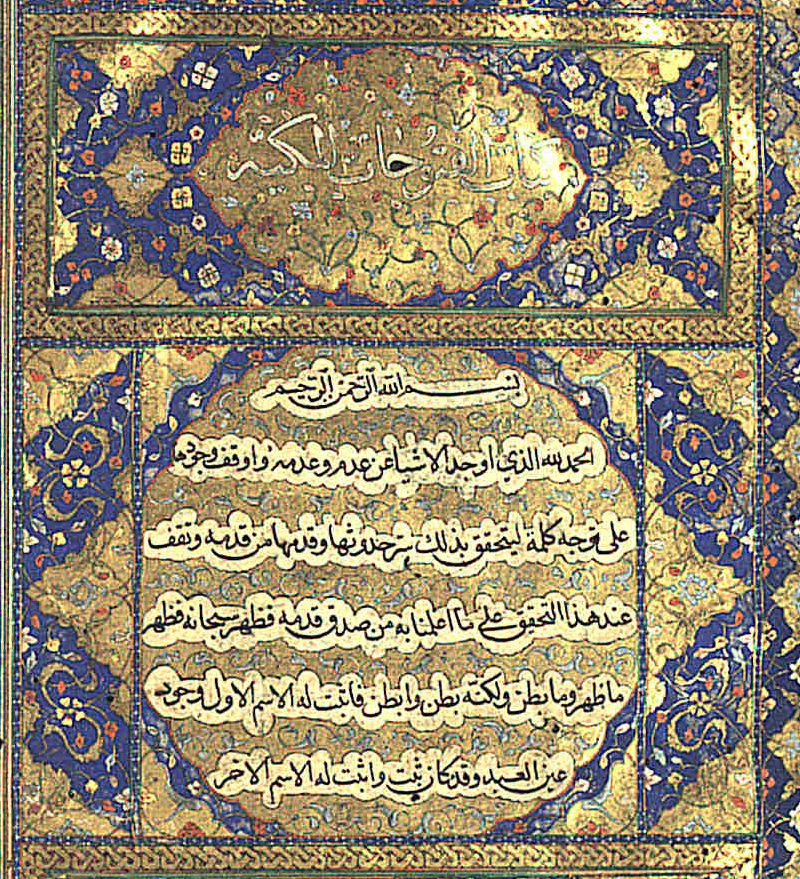 كتاب الفتوحات المكية
بسم الله الرحمن الرحيم
الحمد لله الذي اوجد الاشيا عن عدم وعدمه واوقف وجودها
على توجه كلمه ليتحقق بذلك سر حدوثها وقدمها من قدمه وتقف
عند هذا التحقيق على ما اعلمنا به من صدق قدمه فظهر سبحانه فظهر
ما ظهر وما بطن ولكنه بطن وابطن فاثبت له الاسم الاول وجود
عين العبد وقد كان ثبت واثبت له الاسم الاخر